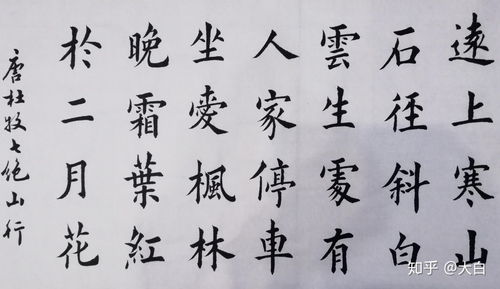 遠上寒山
石徑斜白
雲生處有
人家停車
坐愛楓林
晚霜葉紅
於二月花
唐杜牧七絕山行
知乎 @大白